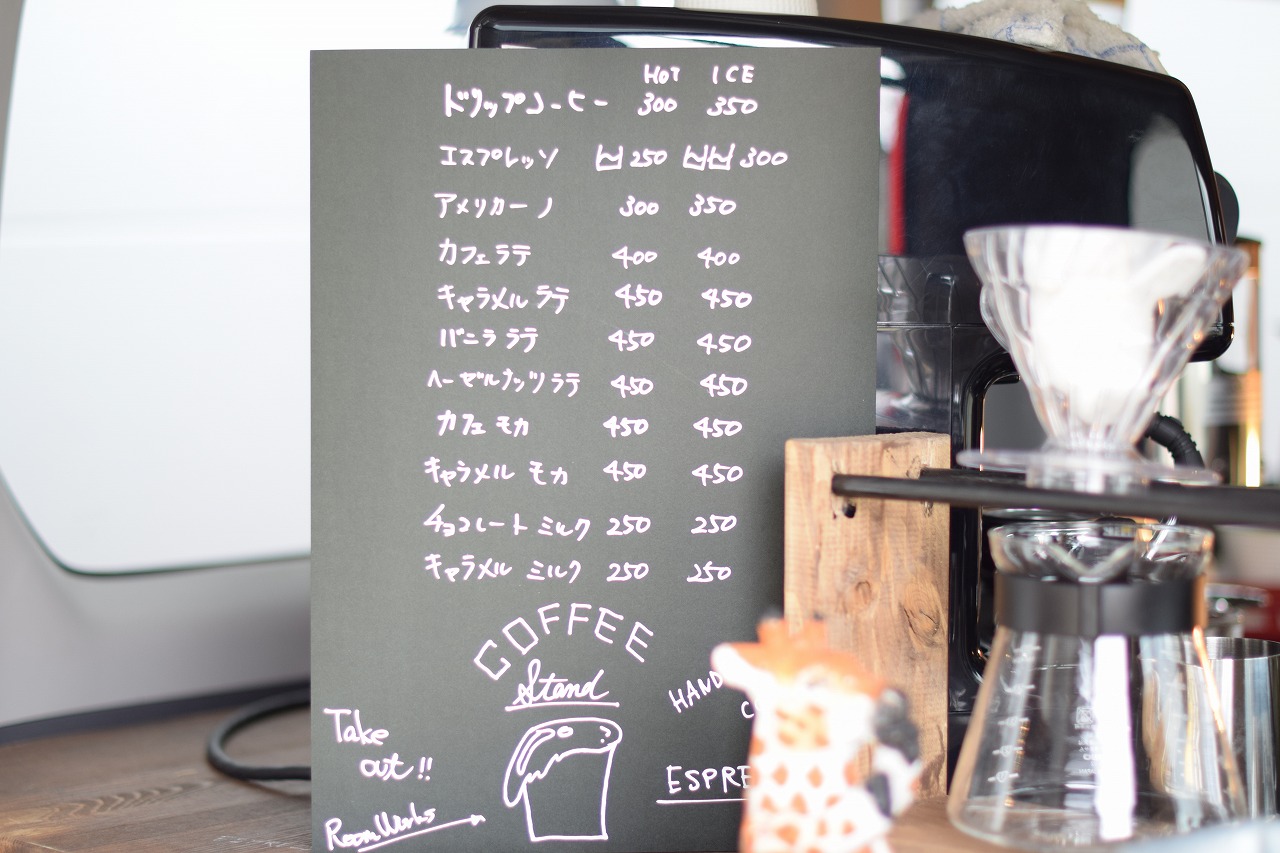 HOT ICE
ドリップコーヒー 300 350
エスプレッソ 250 300
アメリカーノ 300 350
カフェラテ 400 400
キャラメルラテ 450 450
バニララテ 450 450
ヘーゼルナッツラテ 450 450
カフェモカ 450 450
キャラメルモカ 450 450
チョコレートミルク 250 250
キャラメルミルク 250 250
COFFEE
Stand
HAND
Take
out!!
ESPRE
RoomWorks